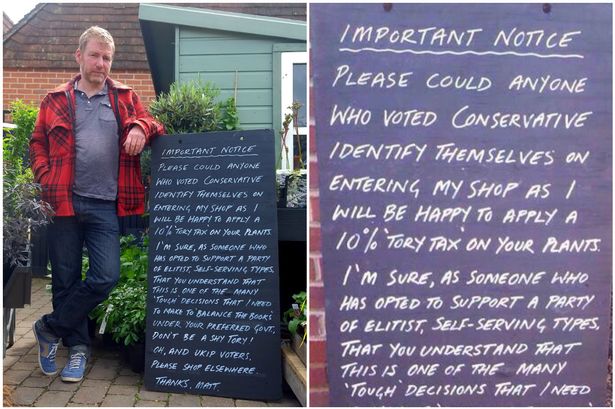 IMPORTANT NOTICE
PLEASE COULD ANYONE
WHO VOTED CONSERVATIVE
IDENTIFY THEMSELVES ON
ENTERING MY SHOP AS I
WILL BE HAPPY TO APPLY A
10% 'TORY TAX' ON YOUR PLANTS.
I'M SURE, AS SOMEONE WHO
HAS OPTED TO SUPPORT A PARTY
OF ELITIST, SELF-SERVING TYPES,
THAT YOU UNDERSTAND THAT
THIS IS ONE OF THE MANY
'TOUGH' DECISIONS THAT I NEED
TO MAKE TO BALANCE THE BOOKS
UNDER YOUR PREFERRED GOVT.
DON'T BE A SHY TORY!
OH, AND UKIP VOTERS,
PLEASE SHOP ELSEWHERE.
THANKS, MATT.
IMPORTANT NOTICE
PLEASE COULD ANYONE
WHO VOTED CONSERVATIVE
IDENTIFY THEMSELVES ON
ENTERING MY SHOP AS I
WILL BE HAPPY TO APPLY A
10% 'TORY TAX' ON YOUR PLANTS.
I'M SURE, AS SOMEONE WHO
HAS OPTED TO SUPPORT A PARTY
OF ELITIST, SELF-SERVING TYPES,
THAT YOU UNDERSTAND THAT
THIS IS ONE OF THE MANY
'TOUGH' DECISIONS THAT I NEED